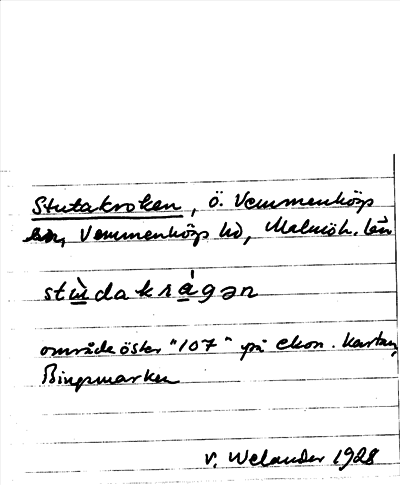 Stutakroken, Ö. Vemmenhögs
sn, Vemmenhögs hd, Malmöh. län
stùdakrágən
område öster "107" på ekon. kartan,
v. Welander 1928